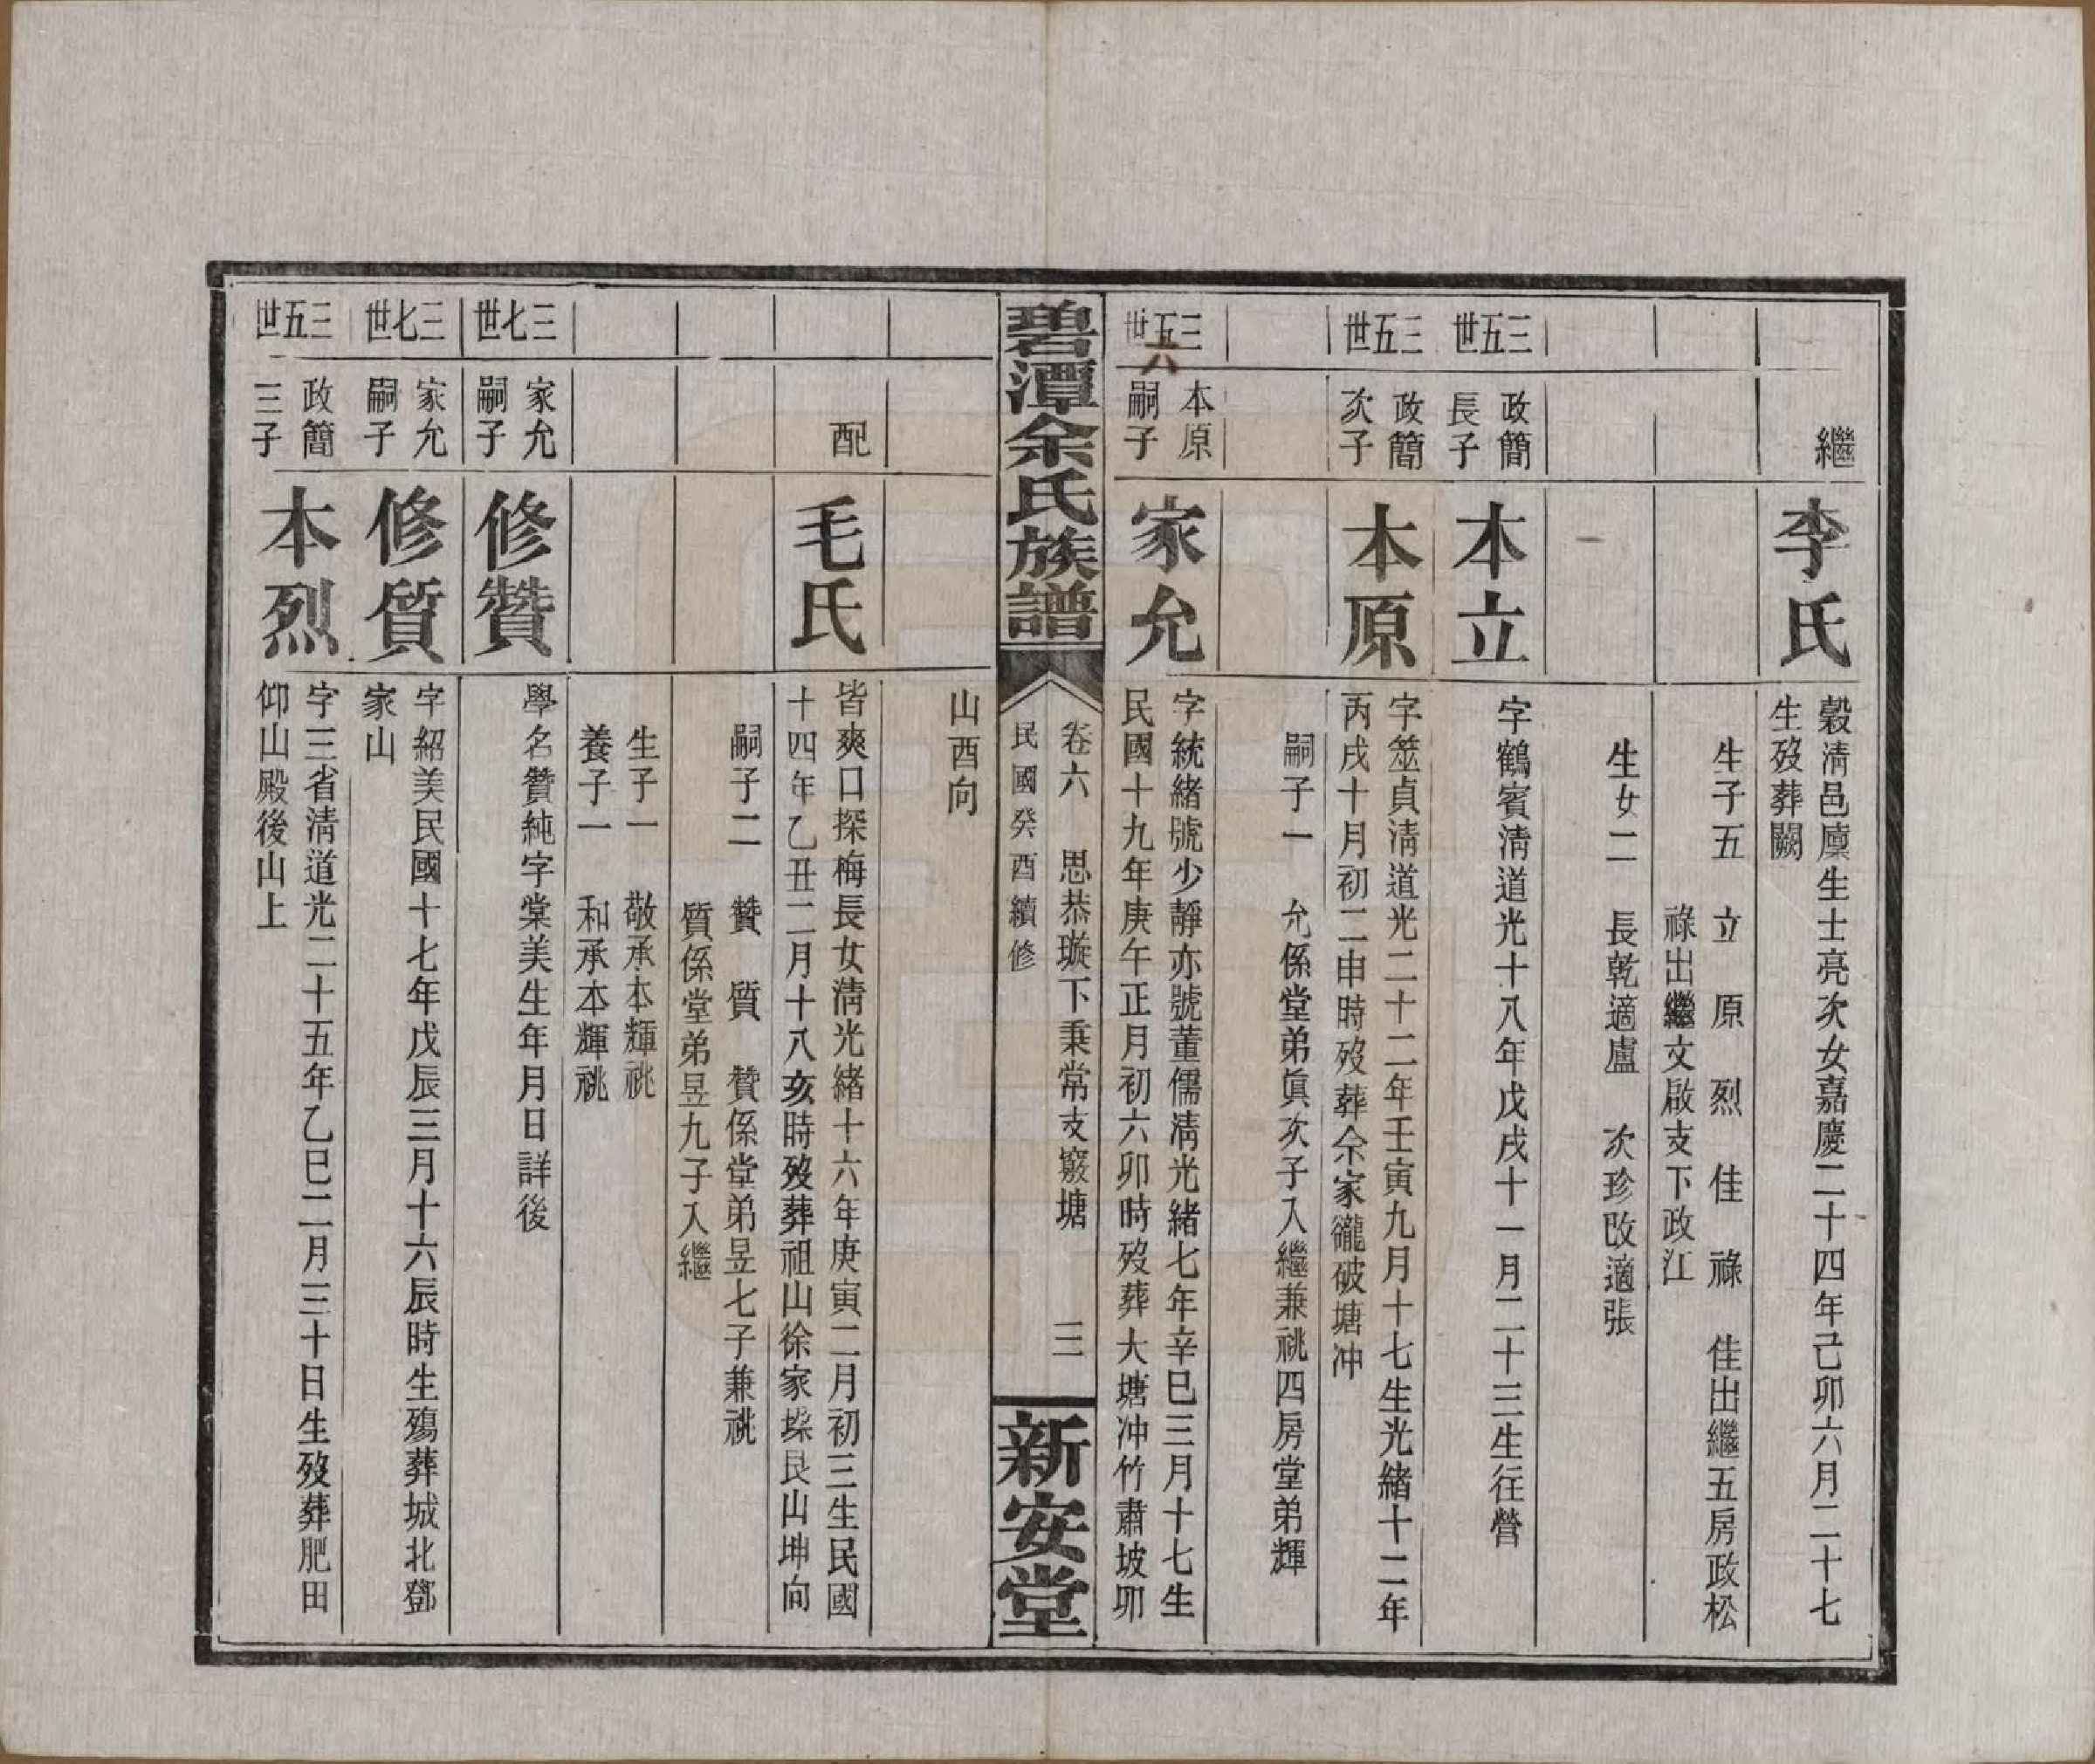 繼
李氏
穀清邑廩生士亮次女嘉慶二十四年己卯六月二十七
生歿葬闕
生子五　立　原　烈　佳　祿　佳出繼五房政松
祿出繼文啟支下政江
生女二　長乾適盧　次珍改適張
三五世
政簡
長子
本立
字鶴賓清道光十八年戊戌十一月二十三生往營
三五世
政簡
次子
本原
字筮貞清道光二十二年壬寅九月十七生光緒十二年
丙戌十月初二申時歿葬余家巄破塘冲
嗣子一　允係堂弟眞次子入繼兼祧四房堂弟輝
三五世
六
本原
嗣子
家允
字統緒號少靜亦號董儒清光緒七年辛巳三月十七生
民國十九年庚午正月初六卯時歿葬大塘冲竹肅坡卯
碧潭余氏族譜
卷六　思恭璇下秉常支竅塘　三
民國癸酉續修
新安堂
山酉向
配
毛氏
皆爽口探梅長女清光緒十六年庚寅二月初三生民國
十四年乙丑二月十八亥時歿葬祖山徐家垛艮山坤向
嗣子二　贊　質　贊係堂弟昱七子兼祧
質係堂弟昱九子入繼
生子一　敬承本輝祧
養子一　和承本輝祧
三七世
家允
嗣子
修贊
學名贊純字棠美生年月日詳後
三七世
家允
嗣子
修質
字紹美民國十七年戊辰三月十六辰時生殤葬城北鄧
家山
三五世
政簡
三子
本烈
字三省清道光二十五年乙巳二月三十日生歿葬肥田
仰山殿後山上